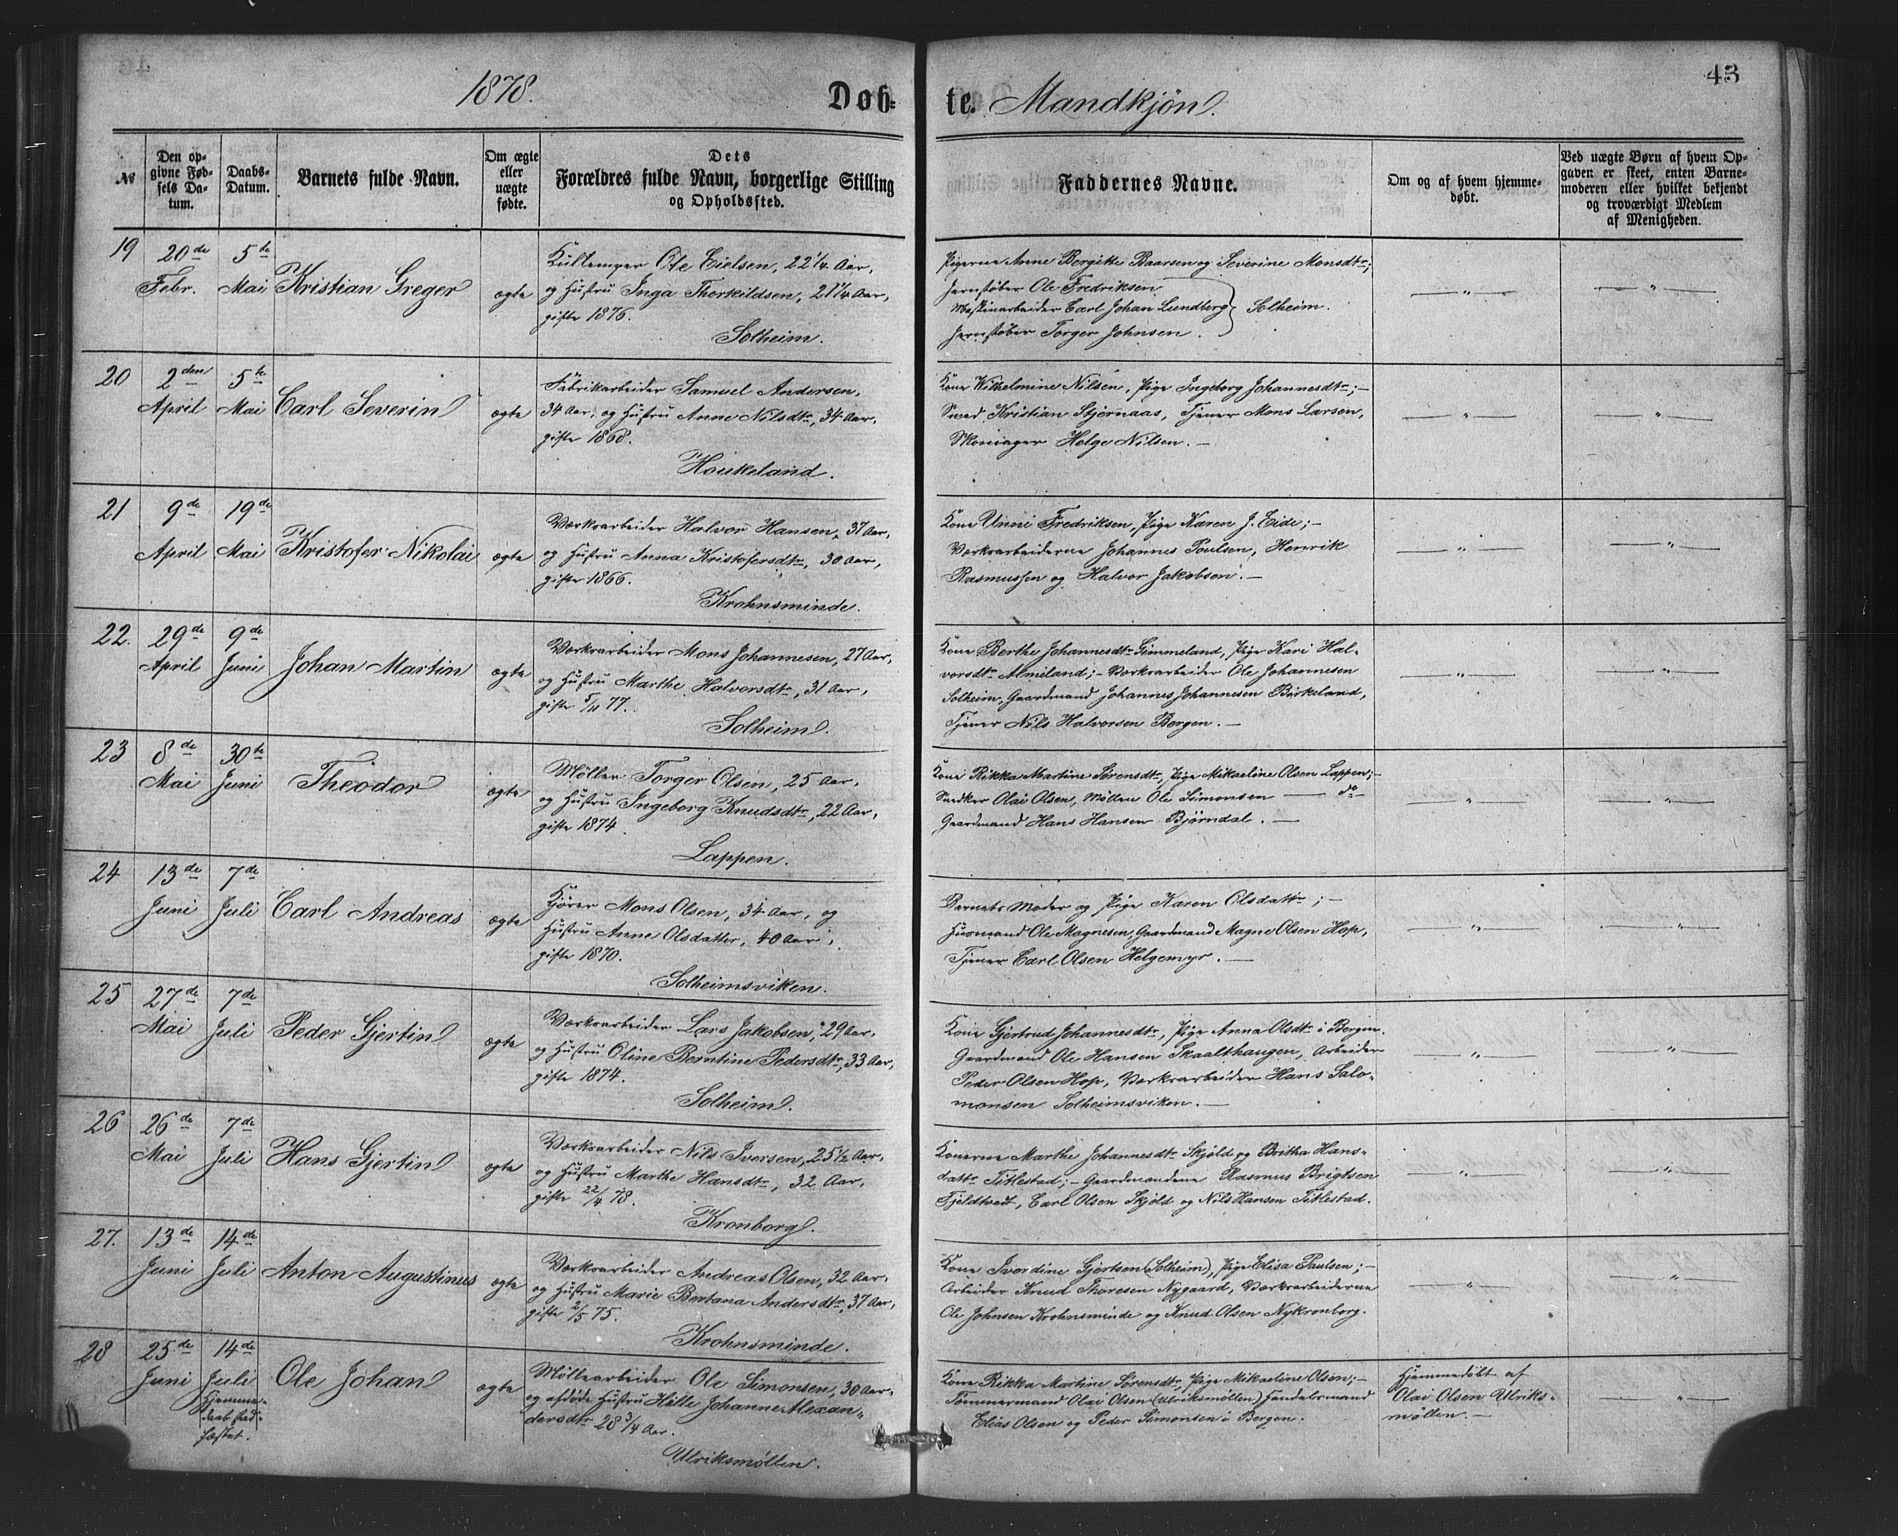 1878.
Døb-
te. Mandkjøn.
43
№
Den op-
givne Fød-
sels Da-
tum.
Daabs-
Datum.
Barnets fulde Navn.
Om ægte
eller
uægte
fødte.
Dets
Forældres fulde Navn, borgerlige Stilling
og Opholdssted.
Faddernes Navne.
Om og af hvem hjemme-
døbt.
Ved uægte Børn af hvem Op-
gaven er skeet, enten Barne-
moderen eller hvilket bekjendt
og troværdigt Medlem
af Menigheden.
19
20de
Febr.
5te
Mai
Kristian Greger
ægte
Kullemper Ole Eielsen, 22 1/4 Aar,
og Hustru Inga Thorkildsen, 21 1/4 Aar,
gifte 1876.
Solheim.
Pigerne Anne Bergitte Baarsen og Severine Monsdtr;
Jernstøber Ole Fredriksen
Maskinarbeider Carl Johan Lundberg Solheim.
Jernstøber Torger Johnsen.
20
2den
April
5te
Mai
Carl Severin
ægte
Fabrikarbeider Samuel Andersen,
34 Aar, og Hustru Anne Nilsdtr, 34 Aar,
gifte 1868.
Houkeland.
Kone Wilhelmine Nilsen, Pige Ingeborg Johannesdtr;-
Smed Kristian Stjernaas, Tjener Mons Larsen,
Skomager Helge Nilsen. -
21
9de
April
19de
Mai
Kristofer Nikolai
ægte
Værksarbeider Halvor Hansen, 37 Aar,
og Hustru Anna Kristofersdtr, 30 Aar,
gifte 1866.
Krohnsminde.
Kone Unni Fredriksen, Pige Karen J. Eide;-
Værksarbeiderne Johannes Poulsen, Henrik
Rasmussen og Halvor Jakobsen. -
22.
29de
April
9de
Juni
Johan Martin
ægte
Værksarbeider Mons Johannesen, 27 Aar,
og Hustru Marthe Halvorsdtr, 31 Aar,
gifte 5/11 77.
Solheim.
Kone Berthe Johannesdtr Gimmeland, Pige Kari Hal-
vorsdtr Almeland; - Værksarbeider Ole Johannesen
Solheim, Gaardmand Johannes Johannesen Birkeland,
Tjener Nils Halvorsen Bergen. -
23
8de
Mai
30te
Juni
Theodor
ægte
Møller Torger Olsen, 25 Aar,
og Hustru Ingeborg Knudsdtr, 22 Aar,
gifte 1874.
Lappen.
Kone Rikka Martine Sørensdtr, Pige Mikaeline Olsen Lappen;-
Snedker Olai Olsen, Møller Ole Simonsen — do
Gaardmand Hans Hansen Bjørndal. -
24
13de
Juni
7de
Juli
Carl Andreas
ægte
Kjører Mons Olsen, 34 Aar, og
Hustru Anne Olsdatter, 40 Aar,
gifte 1870.
Solheimsviken.
Barnets Moder og Pige Karen Olsdattr; -
Husmand Ole Magnesen, Gaardmand Magne Olsen Hop,
Tjener Carl Olsen Helgemyr. -
25
27de
Mai
7de
Juli
Peder Gjertin
ægte
Værksarbeider Lars Jakobsen, 29 Aar,
og Hustru Oline Berntine Pedersdtr, 33 Aar,
gifte 1874.
Solheim.
Kone Gjertrud Johannesdtr, Pige Anna Olsdtr i Bergen.
Gaardmand Ole Hansen Skaalthaugen, Arbeider
Peder Olsen Hop, Værksarbeider Hans Salo-
monsen Solheimsviken. -
26
26de
Mai
7de
Juli
Hans Gjertin
ægte
Værksarbeider Nils Iversen, 25 1/2 Aar,
og Hustru Marthe Hansdtr, 32 Aar,
gifte 22/4 78.
Kronborg.
Konerne Marthe Johannesdtr Skjold og Britha Hans-
dattr Titlestad; - Gaardmændene Rasmus Brigtsen
Fjeldtvedt, Carl Olsen Skjold og Nils Hansen Titlestad.
27.
13de
Juni
14de
Juli
Anton Augustinus
ægte
Værksarbeider Andreas Olsen, 32 Aar,
og Hustru Marie Bertana Andersdtr, 37 Aar,
gifte 2/5 75.
Krohnsminde.
Kone Iverdine Gjertsen (Solheim), Pige Elisa Paulsen;-
Arbeider Knud Thoresen Nygaard, Værksarbeiderne
Ole Johnsen Krohnsminde og Knud Olsen Nykronborg.
28
25de
Juni
14de
Juli
Hjemme-
daab stad-
fæstet.
Ole Johan
ægte
Møllearbeider Ole Simonsen, 30 Aar,
og afdøde Hustru Helle Johanne Alexan-
dersdtr 28 3/4 Aar.
Ulriksmøllen.
Kone Rikka Martine Sørensdtr, Pige Mikaeline Olsen;-
Tømmermand Olai Olsen (Ulriksmøllen), Handelsmand
Elias Olsen og Peder Simonsen i Bergen.
Hjemmedøbt af
Olai Olsen Ulriks-
møllen. -